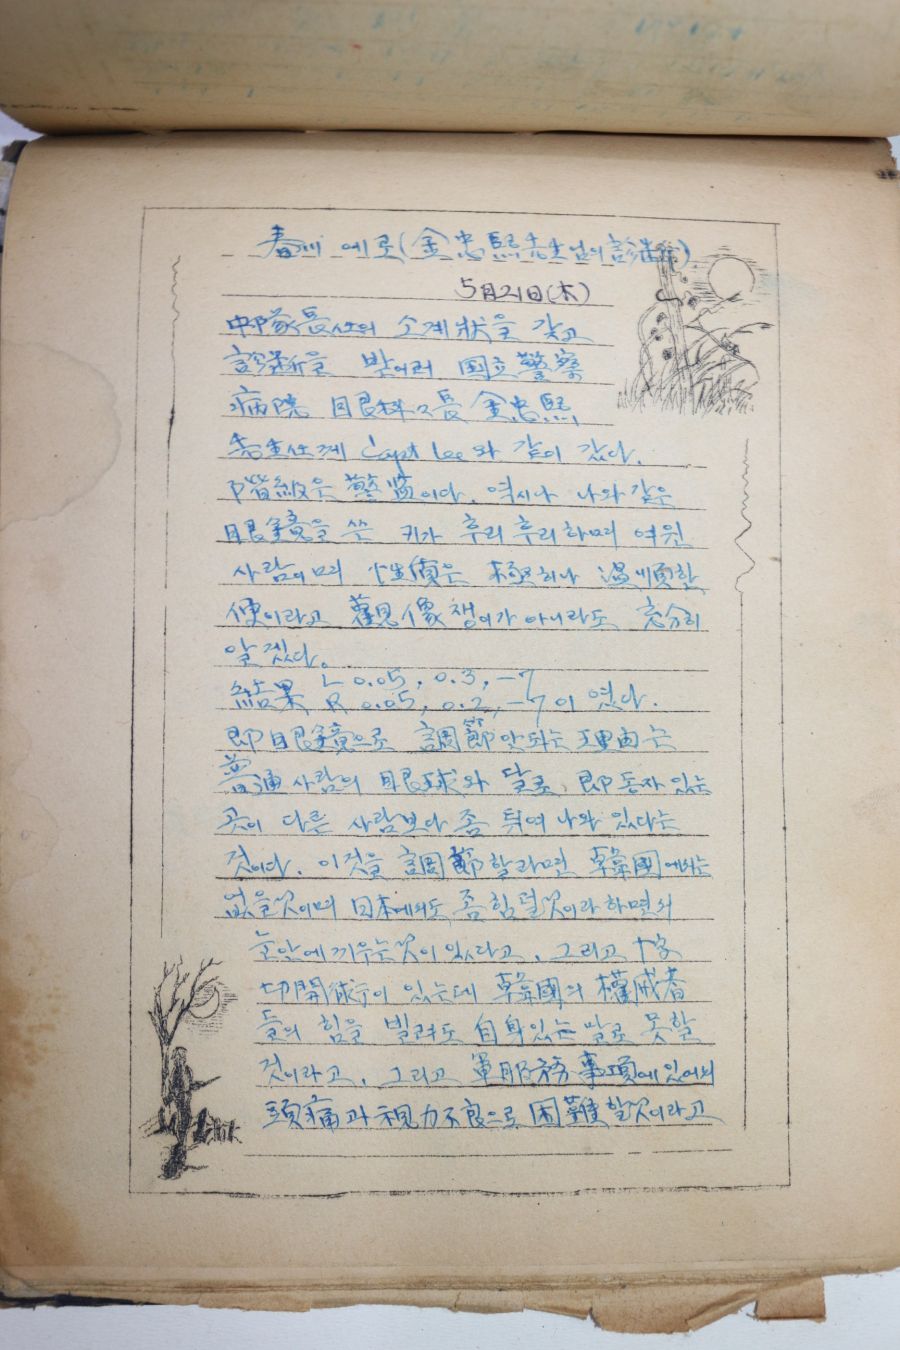 春川 에로(金忠熙先生님의 診断)
5月21日(木)
中隊長任의 소개狀을 갖고
診断을 받어러 国立警察
病院 眼科々長 金忠熙
先生任께 Capt Lee와 같이 갔다.
階級은 警監이다. 역시나 나와 같은
眼鏡을 쓴 키가 후리후리하며 여윈
사람이며 性質은 極히나 温順한
便이라고 觀像쟁이가 아니라도 充分히
알겠다.
結果 L 0.05, 0.3, -7
R 0.05, 0.2, -7 이 였다.
即 眼鏡으로 調節안되는 理由는
普通사람의 眼球와 달로 即 동자 있는
곳이 다른 사람보다 좀 튀여 나와 있다는
것이다. 이것을 調節할라면 韓國에는
없을것이며 日本에의도 좀 힘될것이라 하면의
눈안에 끼우는것이 있다고, 그리고 十字
切開術이 있는데 韓國의 權威者
들의 힘을 빌려도 自身있는 말로 못할
것이라고, 그리고 軍服務 事項에 있어의
頭痛과 視力不良으로 困難할것이라고